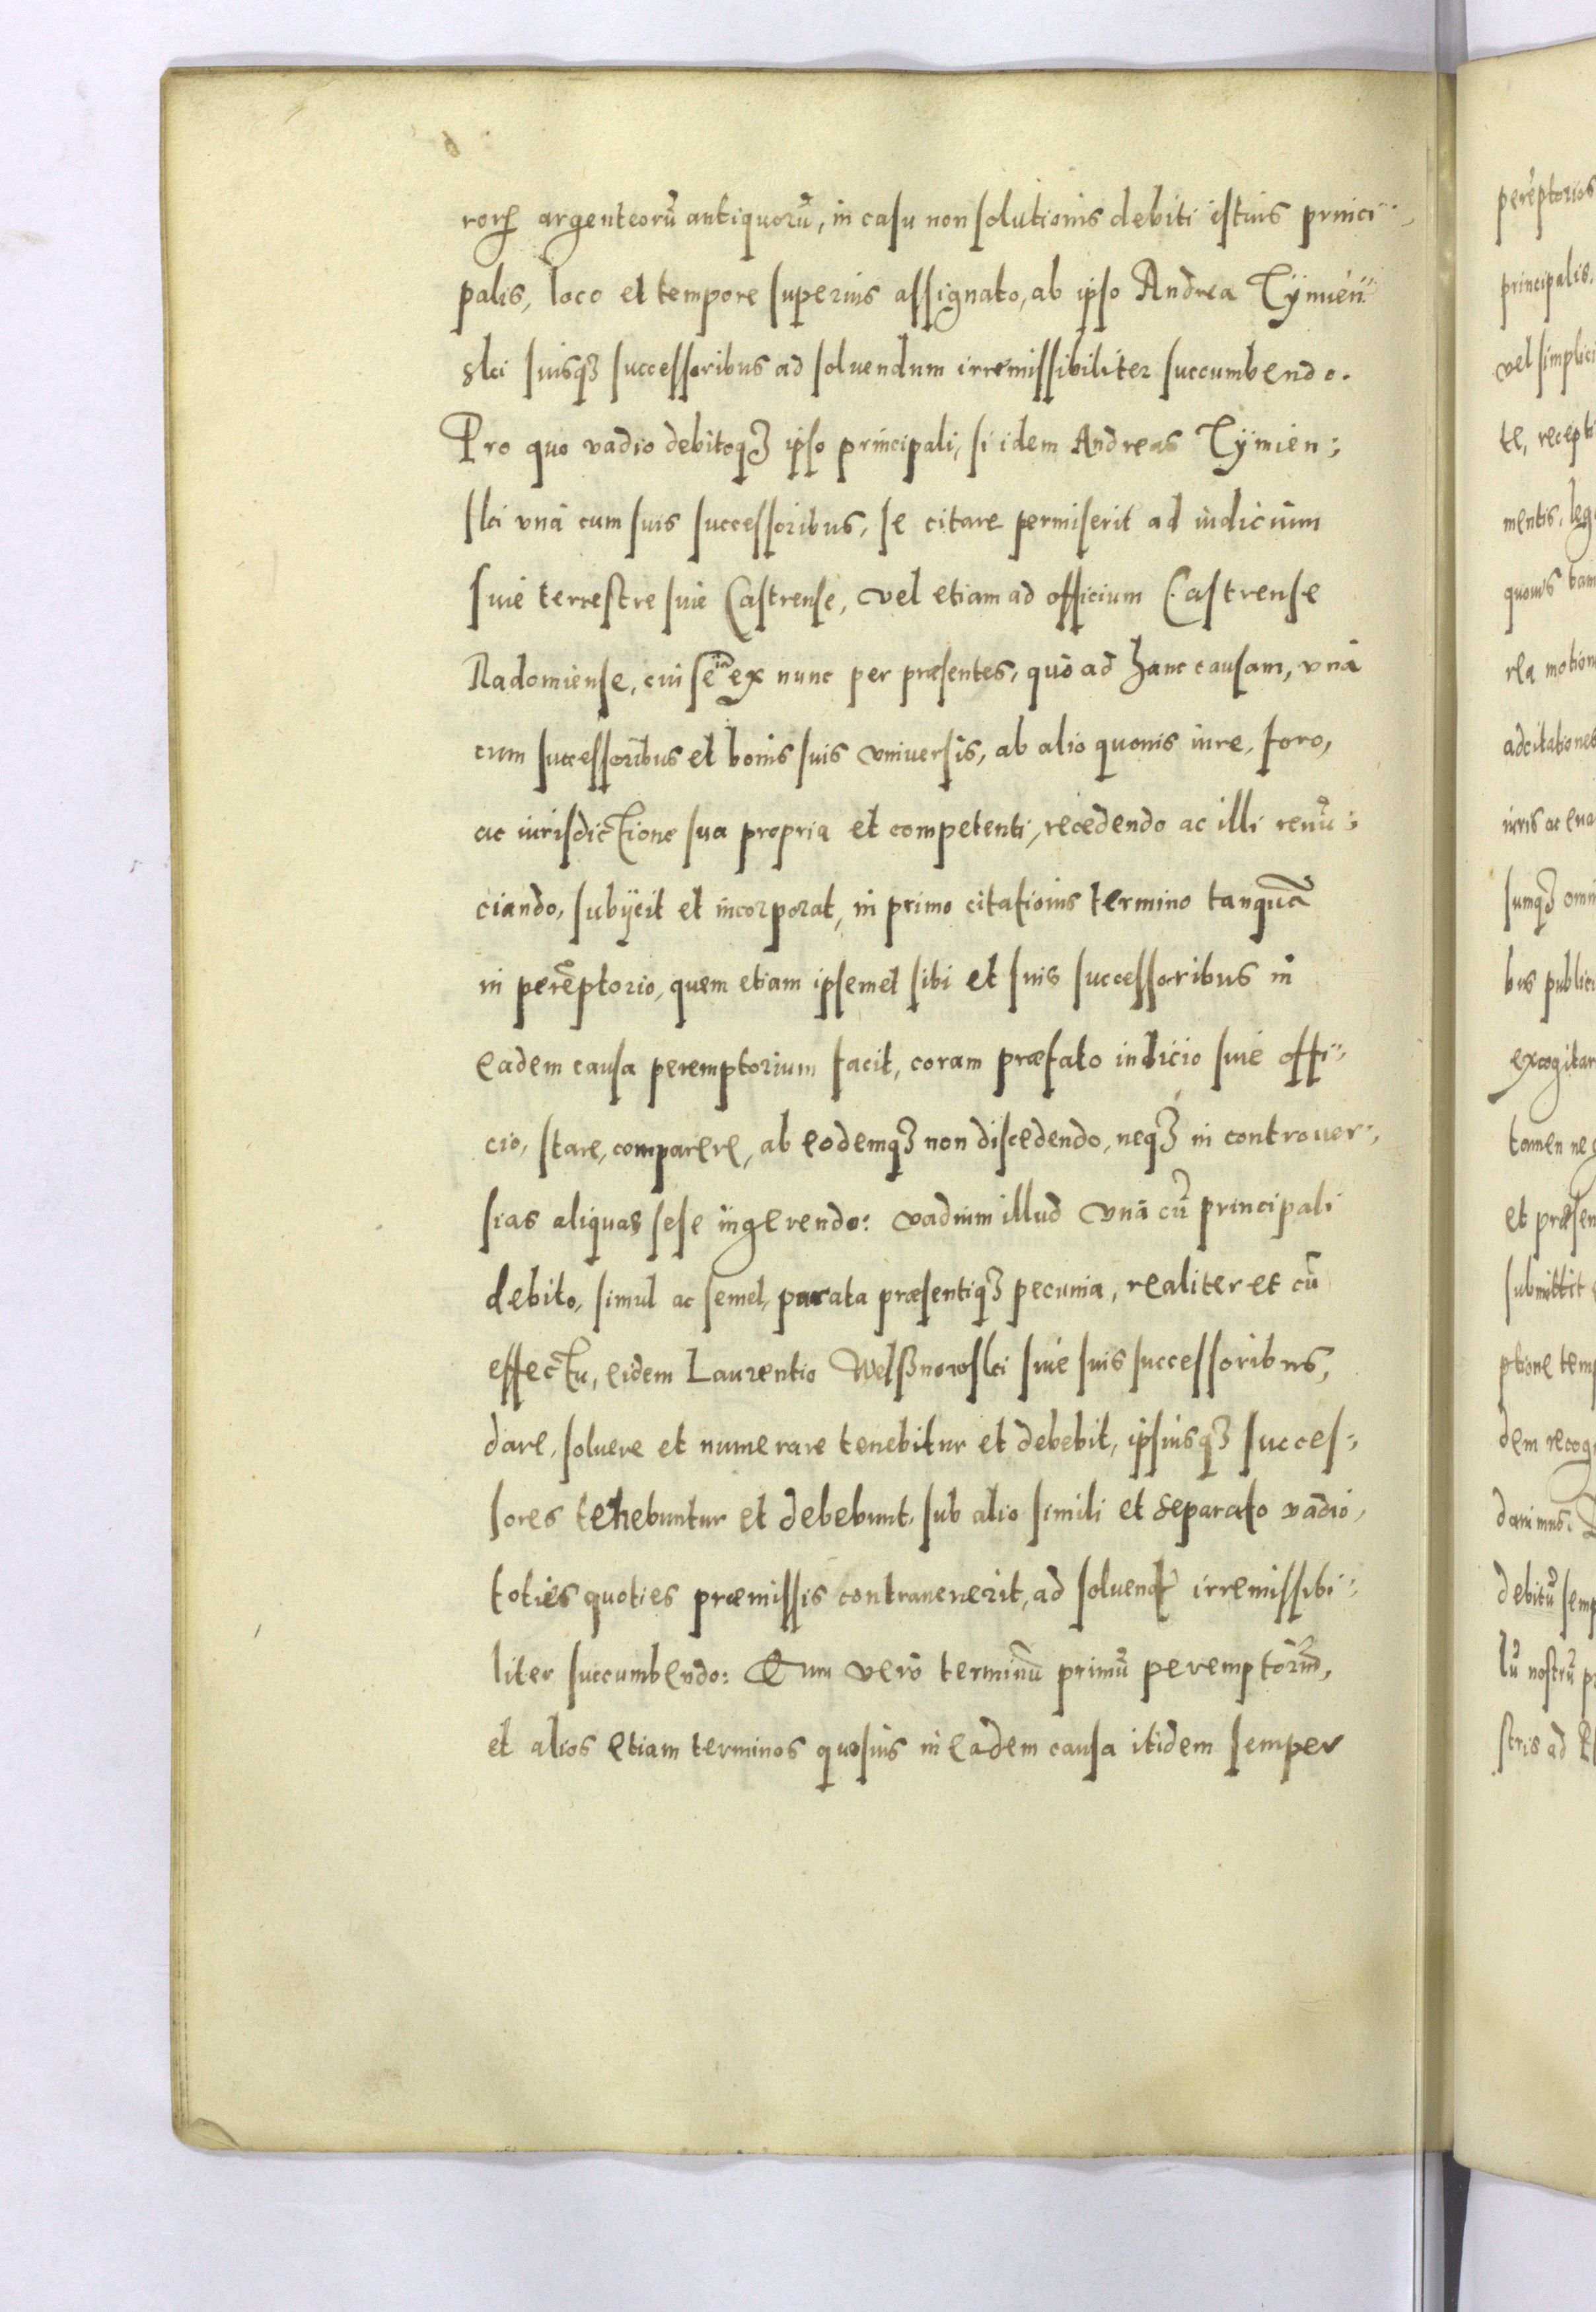 rorꝭ argenteorū antiquorū, in casu non solutionis debiti istius princi¨
palis, loco et tempore superius assignato, ab ipso Andrea Tÿmień¨
ski suisqꝫ successoribus ad soluendum irremissibiliter succumbendo.
Pro quo vadio debitoqꝫ ipso principali, si idem Andreas Tÿmien:
ski vnà cum suis successoribus, se citare permiserit ad iudicium
siue terrestre siue Castrense, vel etiam ad officium Castrense
Radomiense, cui se iā ex nunc per præsentes, quo ad hanc causam, vnà
cum successoribus et bonis suis vniuersis, ab alio quouis iure, foro,
ac iurisdictione sua propria et competenti, recedendo ac illi renū:
ciando, subÿcit et incorporat, in primo citationis termino tanquā
in perēptorio, quem etiam ipsemet sibi et suis successoribus in
eadem causa peremptorium facit, coram præfato iudicio siue offi¨
cio, stare, comparere, ab eodemqꝫ non discedendo, neqꝫ in controuer¨
sias aliquas sese ingerendo: vadium illud vnà cū principali
debito, simul ac semel, parata præsentiqꝫ pecunia, realiter et cū
effectu, eidem Laurentio Welßnowski siue suis successoribus,
dare, soluere et numerare tenebitur et debebit, ipsiusqꝫ succes:
sores tenebuntur et debebunt, sub alio simili et separato vadio,
toties quoties præmissis contrauenerit, ad soluend irremissibi¨
liter succumbendo: Cum verò terminū primū peremptoriū,
et alios etiam terminos quosuis in eadem causa itidem semper
perēptorios
principalis,
vel simplici
te, recepti
mentis, leg
quouis tam
rea motion
adcitationes
iuris ac eua
sumqꝫ omn
bus public
excogitar
tamen ne
et præsen
submittit
ptione tem
dem recog
debitū sem
lū nostrū
stris ad